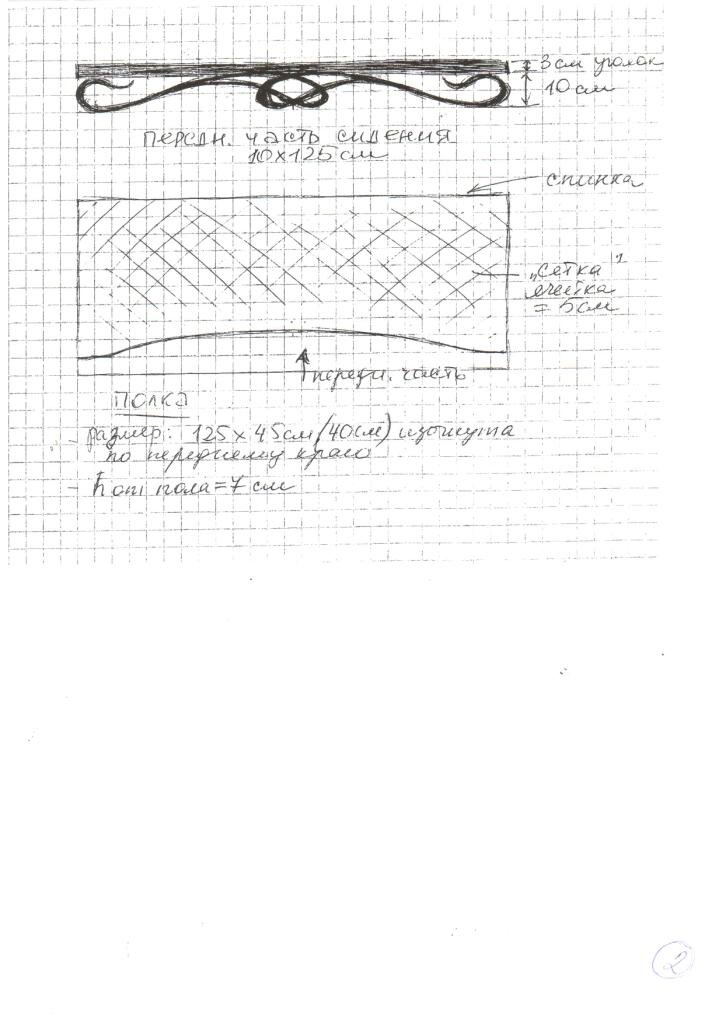 3см уголок
10см
передн. часть сидения
10х125см
спинка
„сетка"
ячейка
= 5см
передн. часть
ПОЛКА
- размер: 125 х 45см (40см) изогнута
по переднему краю
- h от пола = 7 см
2